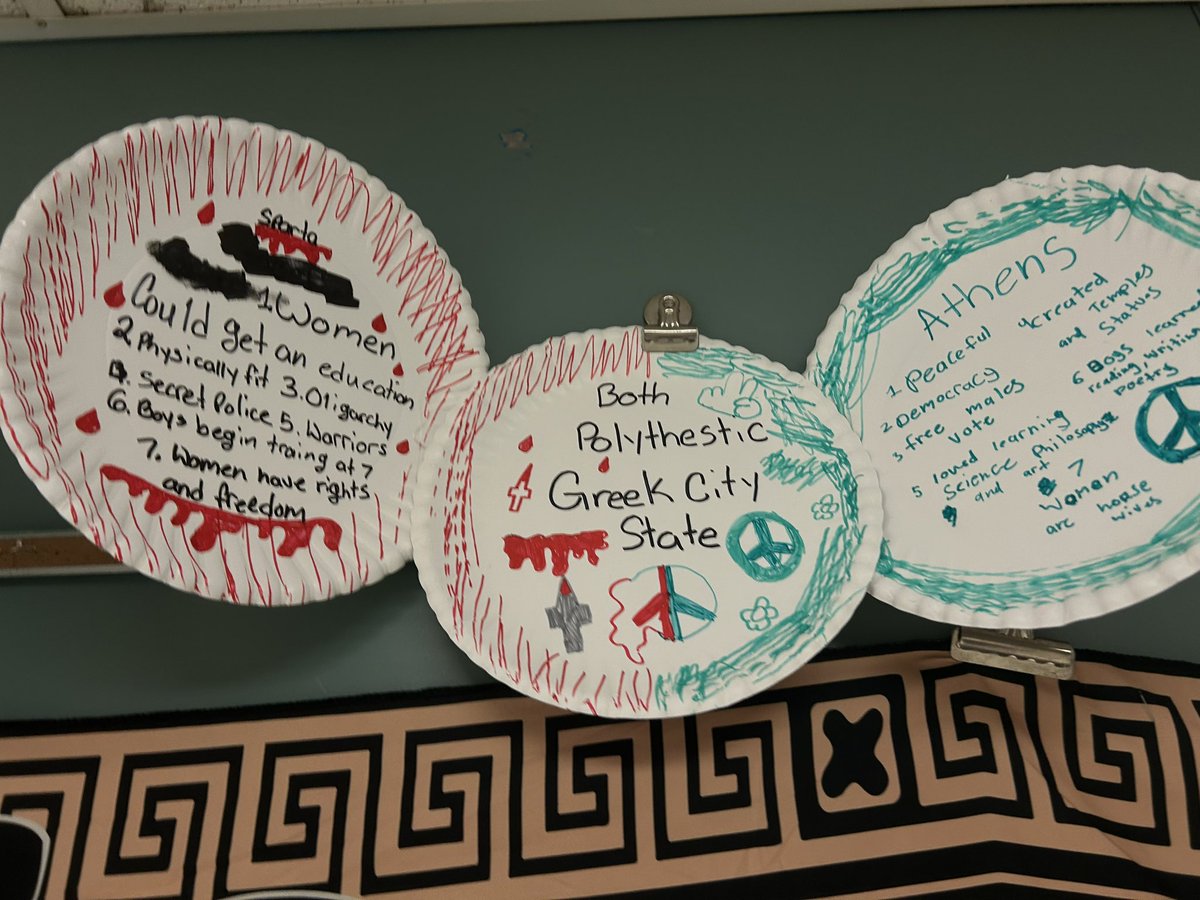 Sparta
1 Women
Could get an education
2. Physically fit 3. Oligarchy
4. Secret Police 5. Warriors
6. Boys begin traing at 7
7. Women have rights
and freedom
Both
Polythestic
Greek City
State
Athens
1 Peaceful
2 Democracy
3 free males
vote
5 loved learning
Science Philosophy
and art
4 created
and Temples
Statues
6 Boys learned
reading, writing
poetry
7
Women
are house
wives